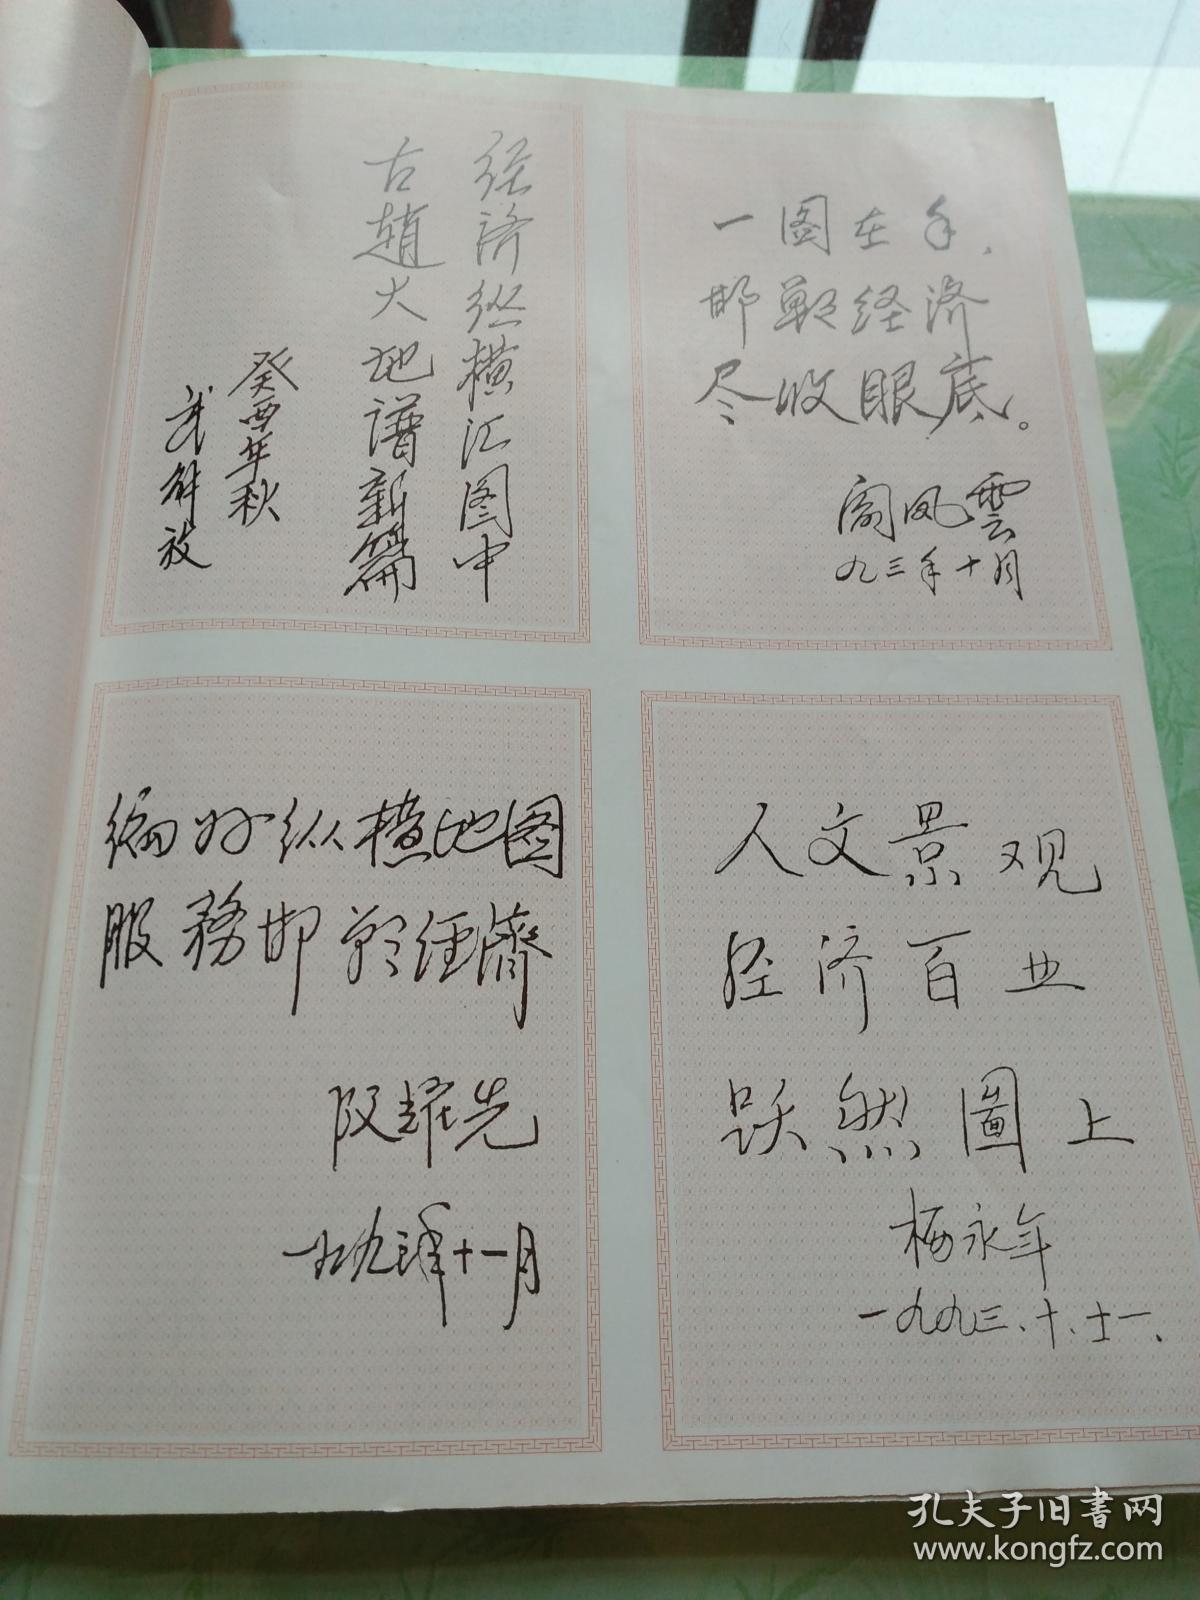 经济纵横汇图中
古趙大地谱新篇
癸酉年秋
武解放
一图在手、
邯郸经济
尽收眼底。
阎凤雲
九三年十月
编好纵横地图
服務邯郸经濟
段耀先
一九九三年十一月
人文景观
经济百业
跃然圖上
永年
一九九三、十、
孔夫子旧书网
www.kongfz.com